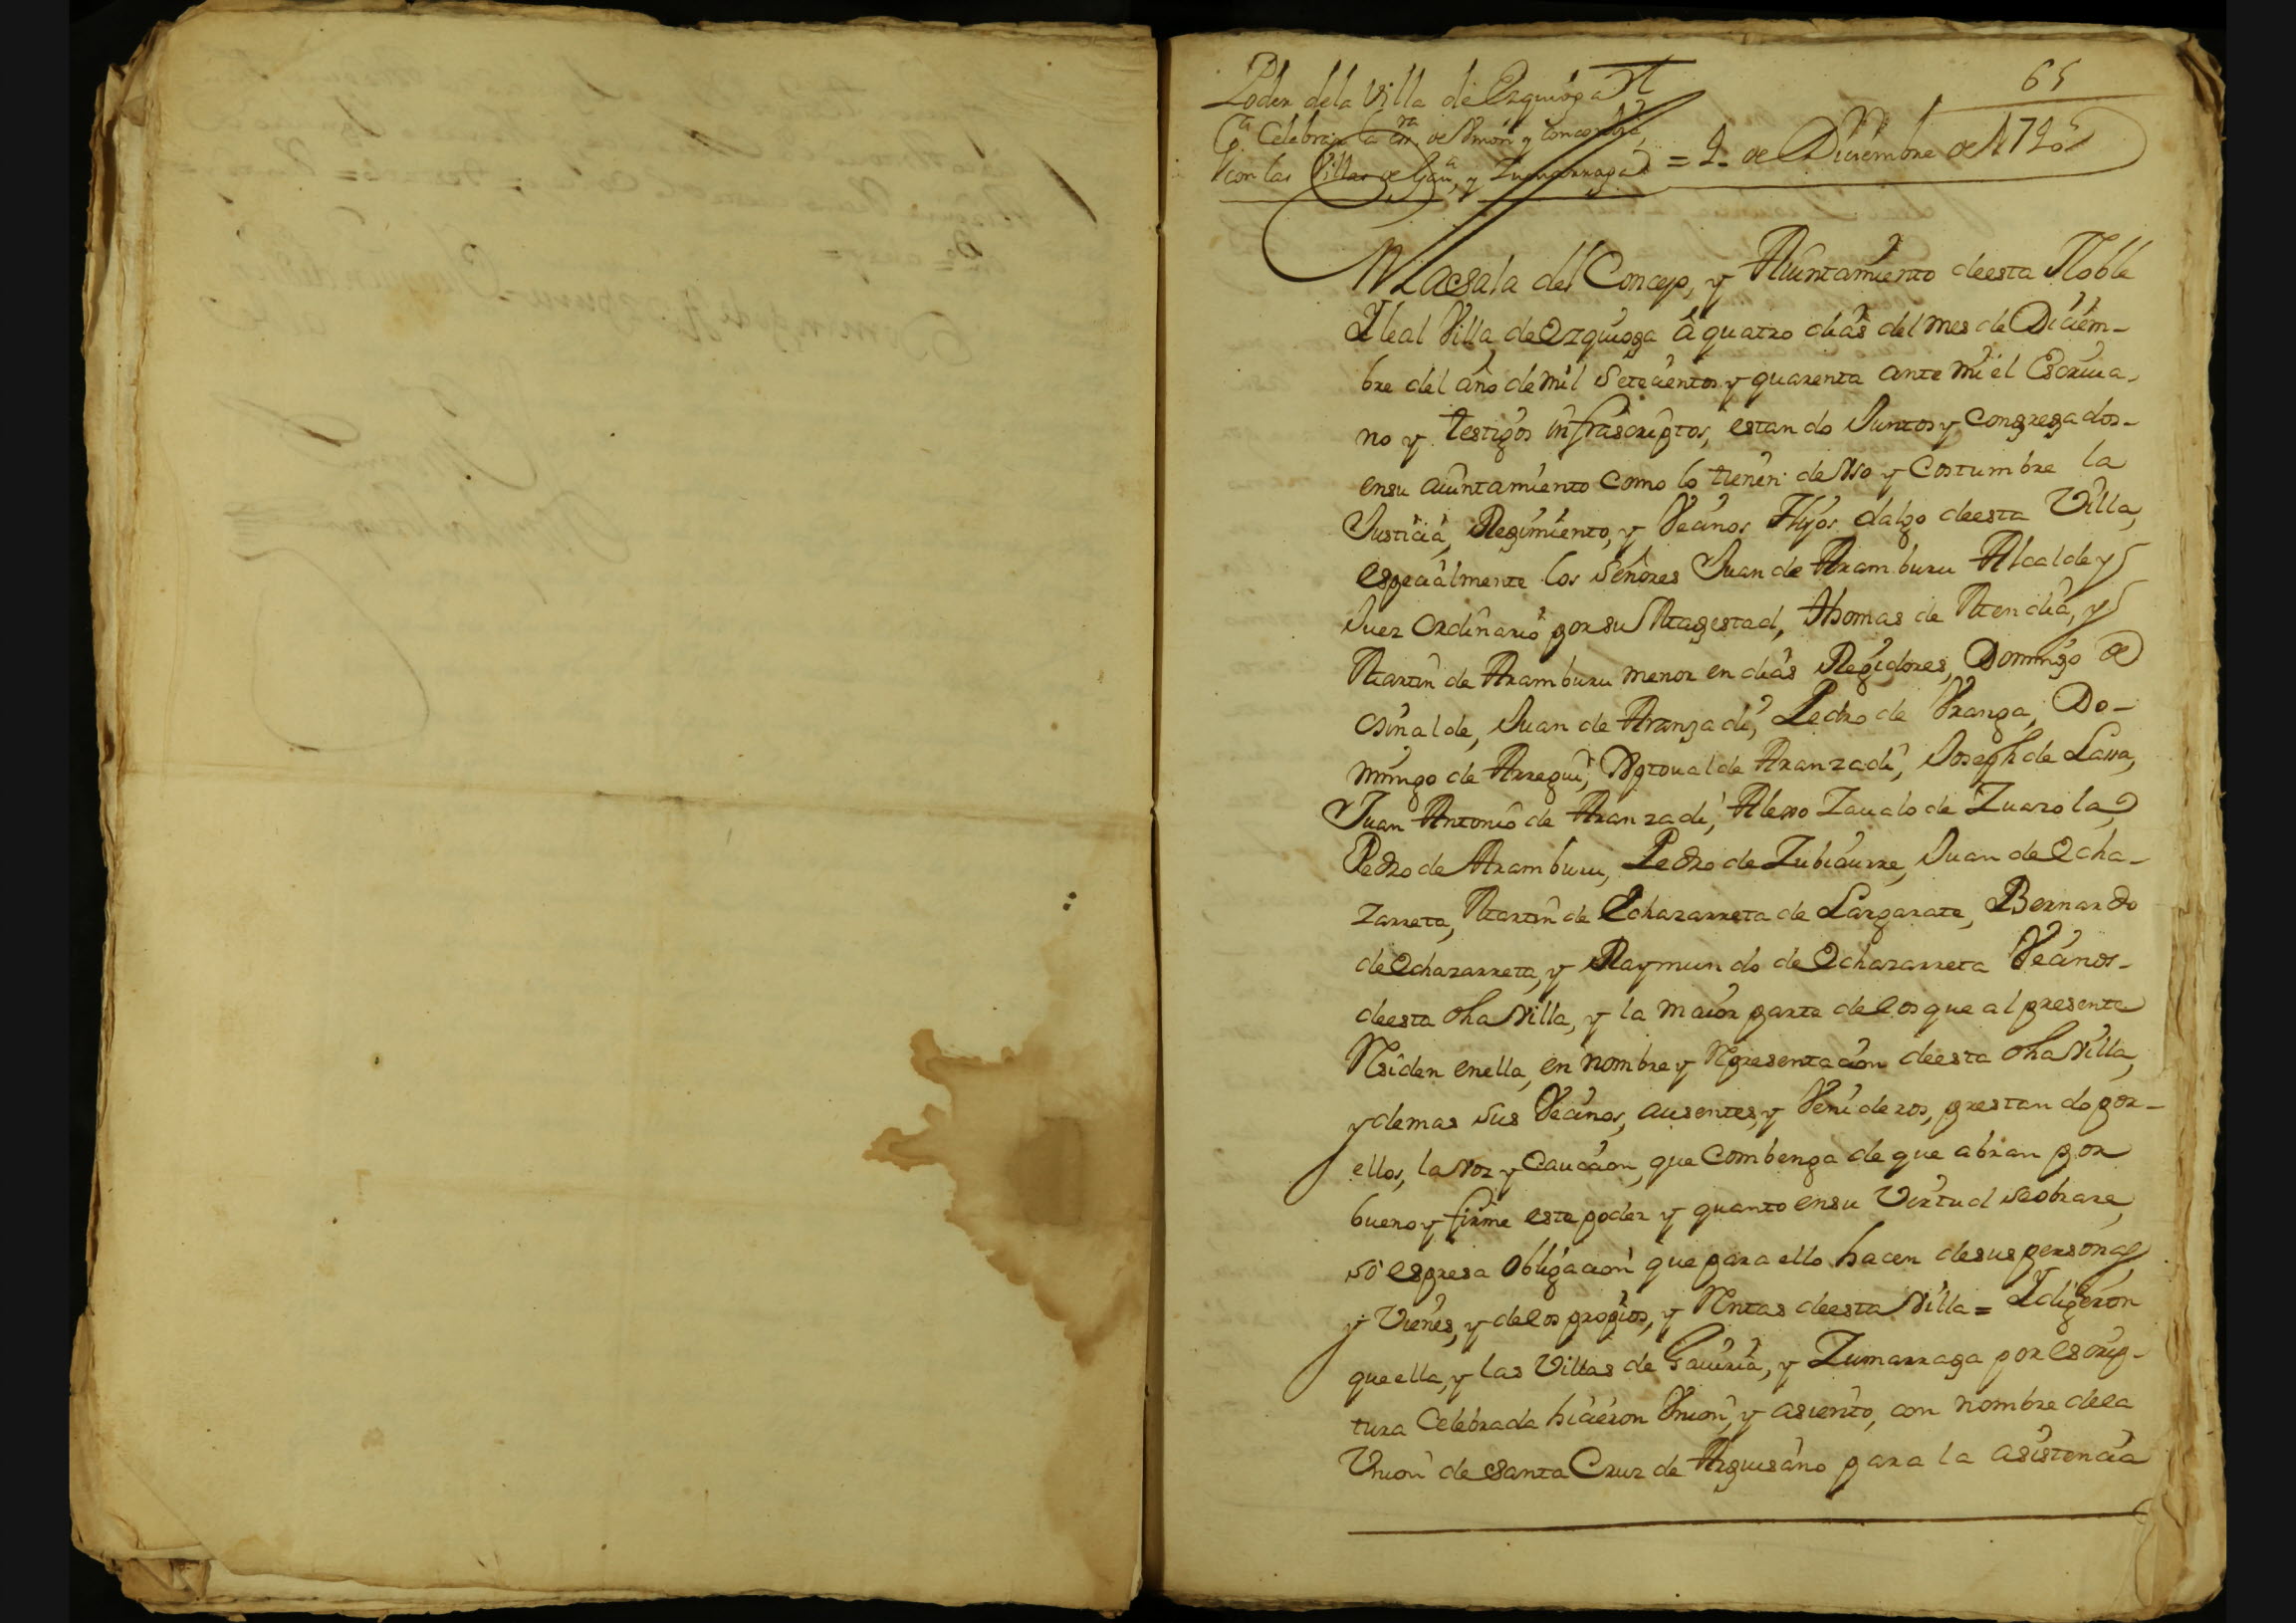 65
Poder dela Villa de Ezquioga
Pª Celebrar la esn.ra de Vnion y Concordia,
con las Villas de Gauª, y Zumarraga = 2. de Diciembre de 1740
En La Sala del Concejo, y Aiuntamiento deesta Noble
Y leal Villa de Ezquioga â quatro dias del mes de Diciem-
bre del año de mil Setecientos y quarenta ante mi el Escriua-
no y testigos infrascriptos, estando Juntos y Congregados-
ensu aiuntamiento como lo tienen de Vso y Costumbre la
Justicia, Regimiento, y Vecinos Hijos dalgo deesta Villa,
especialmente los Señores Juan de Aramburu Alcalde y
Juez Ordinario por su Magestad, Thomas de Mendia, y
Martin de Aramburu menor en dias Regidores, Domingo de
Osinalde, Juan de Aranzadi, Pedro de Vranga, Do-
mingo de Arregui, Xptoual de Aranzadi, Joseph de Lassa,
Juan Antonio de Aranzadi, Alexo Zaualo de Zuazola,
Pedro de Aramburu, Pedro de Zubiaurre, Juan de Echa-
zarreta, Martin de Echazarreta de Largarate, Bernardo
de Echazarreta, y Raymundo de Echazarreta Vecinos-
deesta dha Villa, y la maior parte delos que al presente
Residen enella, en nombre y Representacion deesta dha Villa,
y demas sus Vecinos, ausentes, y Venideros, prestando por-
ellos, la Voz y Caucion, que Combenga de que abran por
bueno y firme este poder y quanto ensu Virtud seobrare,
so espresa Obligacion que para ello hacen desus personas
y Vienes, y delos propios, y Rentas deesta Villa = Y digeron
que ella, y las Villas de Gauiria, y Zumarraga por escrip-
tura Celebrada hicieron Vnion, y asiento, con nombre dela
Vnion de Santa Cruz de Arguisano para la asistencia